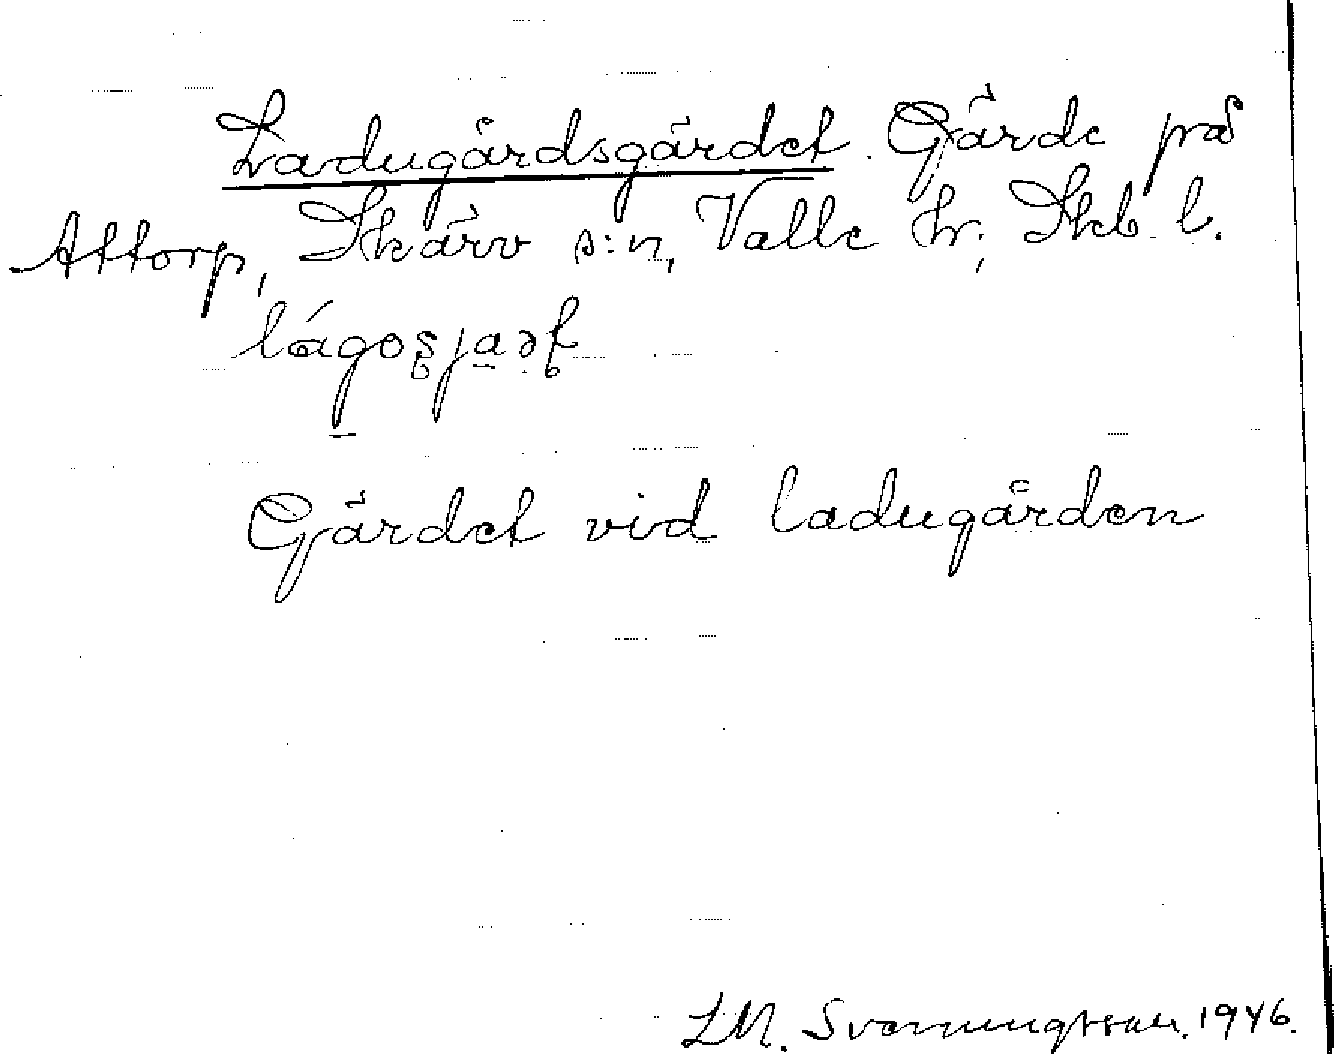 Ladugårdsgärdet. Gärde på
Attorp, Skärv s:n, Valle hr; Skb. l.
Gärdet vid ladugården
LM. Svenungsson. 1946.